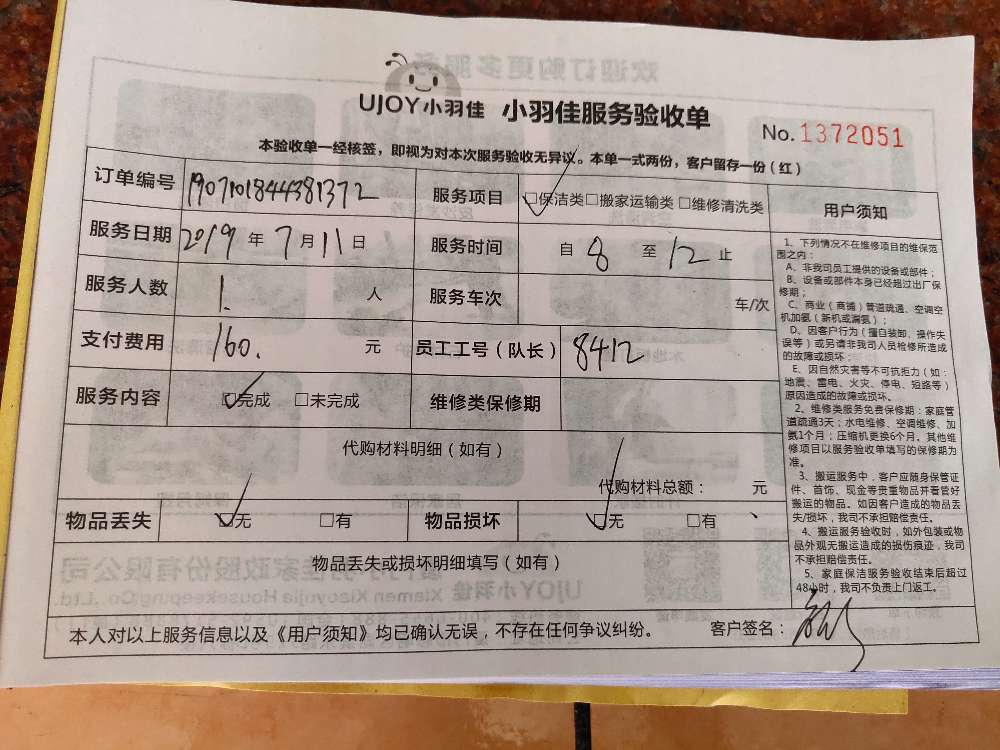 UJOY小羽佳 小羽佳服务验收单
No. 1372051
本验收单一经核签，即视为对本次服务验收无异议。本单一式两份，客户留存一份（红）
订单编号 190710184438 1372 服务项目 ☑保洁类□搬家运输类 □维修清洗类
服务日期 2019 年 7 月 11 日 服务时间 自 8 至 12 止
服务人数 1. 人 服务车次 车/次
支付费用 160. 元 员工工号（队长） 8412
服务内容 ☑完成 □未完成 维修类保修期
代购材料明细（如有）
代购材料总额： 元
物品丢失 ☑无 □有 物品损坏 ☑无 □有
物品丢失或损坏明细填写（如有）
本人对以上服务信息以及《用户须知》均已确认无误，不存在任何争议纠纷。 客户签名：
用户须知
1、下列情况不在维修项目的维保范
围之内：
A、非我司员工提供的设备或部件；
B、设备或部件本身已经超过出厂保
修期；
C、商业（商铺）管道疏通、空调空
机加氨（新机或漏氨）；
D、因客户行为（擅自装卸、操作失
误等）或另请非我司人员检修所造成
的故障或损坏；
E、因自然灾害等不可抗拒力（如：
地震、雷电、火灾、停电、短路等）
原因造成的故障或损坏。
2、维修类服务免费保修期：家庭管
道疏通3天；水电维修、空调维修、加
氨1个月；压缩机更换6个月。其他维
修项目以服务验收单填写的保修期为
准。
3、搬运服务中，客户应随身保管证
件、首饰、现金等贵重物品并看管好
搬运的物品。如因客户造成的物品丢
失/损坏，我司不承担赔偿责任。
4、搬运服务验收时，如外包装或物
品外观无搬运造成的损伤痕迹，我司
不承担赔偿责任。
5、家庭保洁服务验收结束后超过
48小时，我司不负责上门返工。